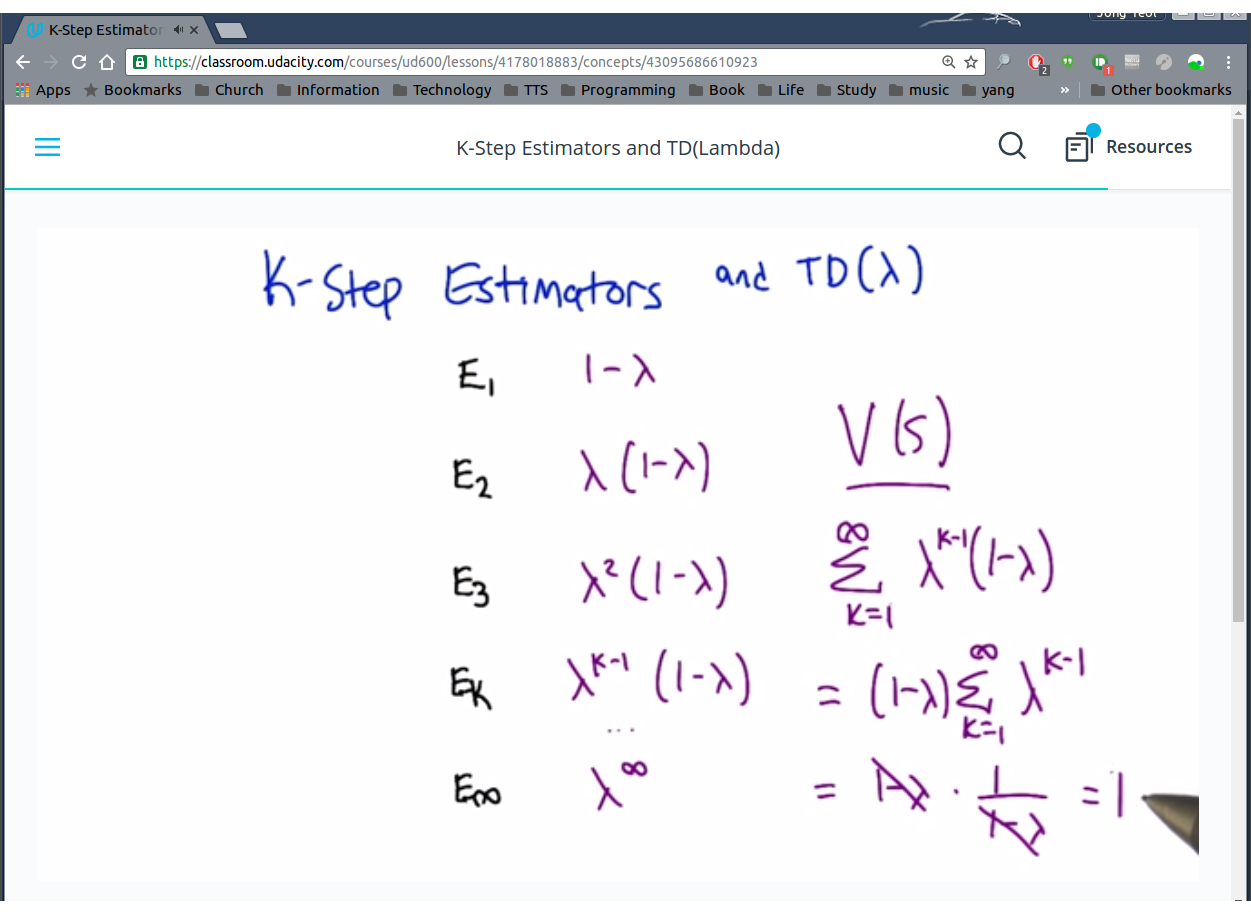 K-Step Estimator
Jong Yeol
https://classroom.udacity.com/courses/ud600/lessons/4178018883/concepts/43095686610923
2
1
Apps Bookmarks Church Information Technology TTS Programming Book Life Study music yang » Other bookmarks
K-Step Estimators and TD(Lambda)
Resources
K-Step Estimators and TD(λ)
E₁ 1-λ
V(s)
E₂ λ(1-λ)
E₃ λ²(1-λ)
∞
Σ λᴷ⁻¹(1-λ)
K=1
Eₖ λᴷ⁻¹ (1-λ)
∞
= (1-λ) Σ λᴷ⁻¹
K=1
...
E∞ λ^∞
= 1-λ · 1/(1-λ) = 1